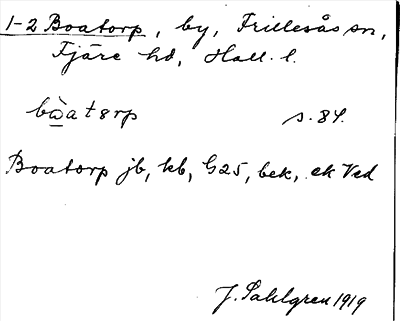 1-2 Boatorp, by, Frillesås sn,
Fjäre hd, Hall. l.
bòatərp s. 84.
Boatorp jb, kb, G25, bek, ek Ved
J. Sahlgren 1919